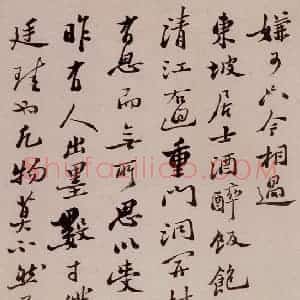 可只今相過
東坡居士酒醉飯飽
清江右洄重門洞開
有思而無所思以受
昨有人出墨數寸
廷珪也凡物莫不然